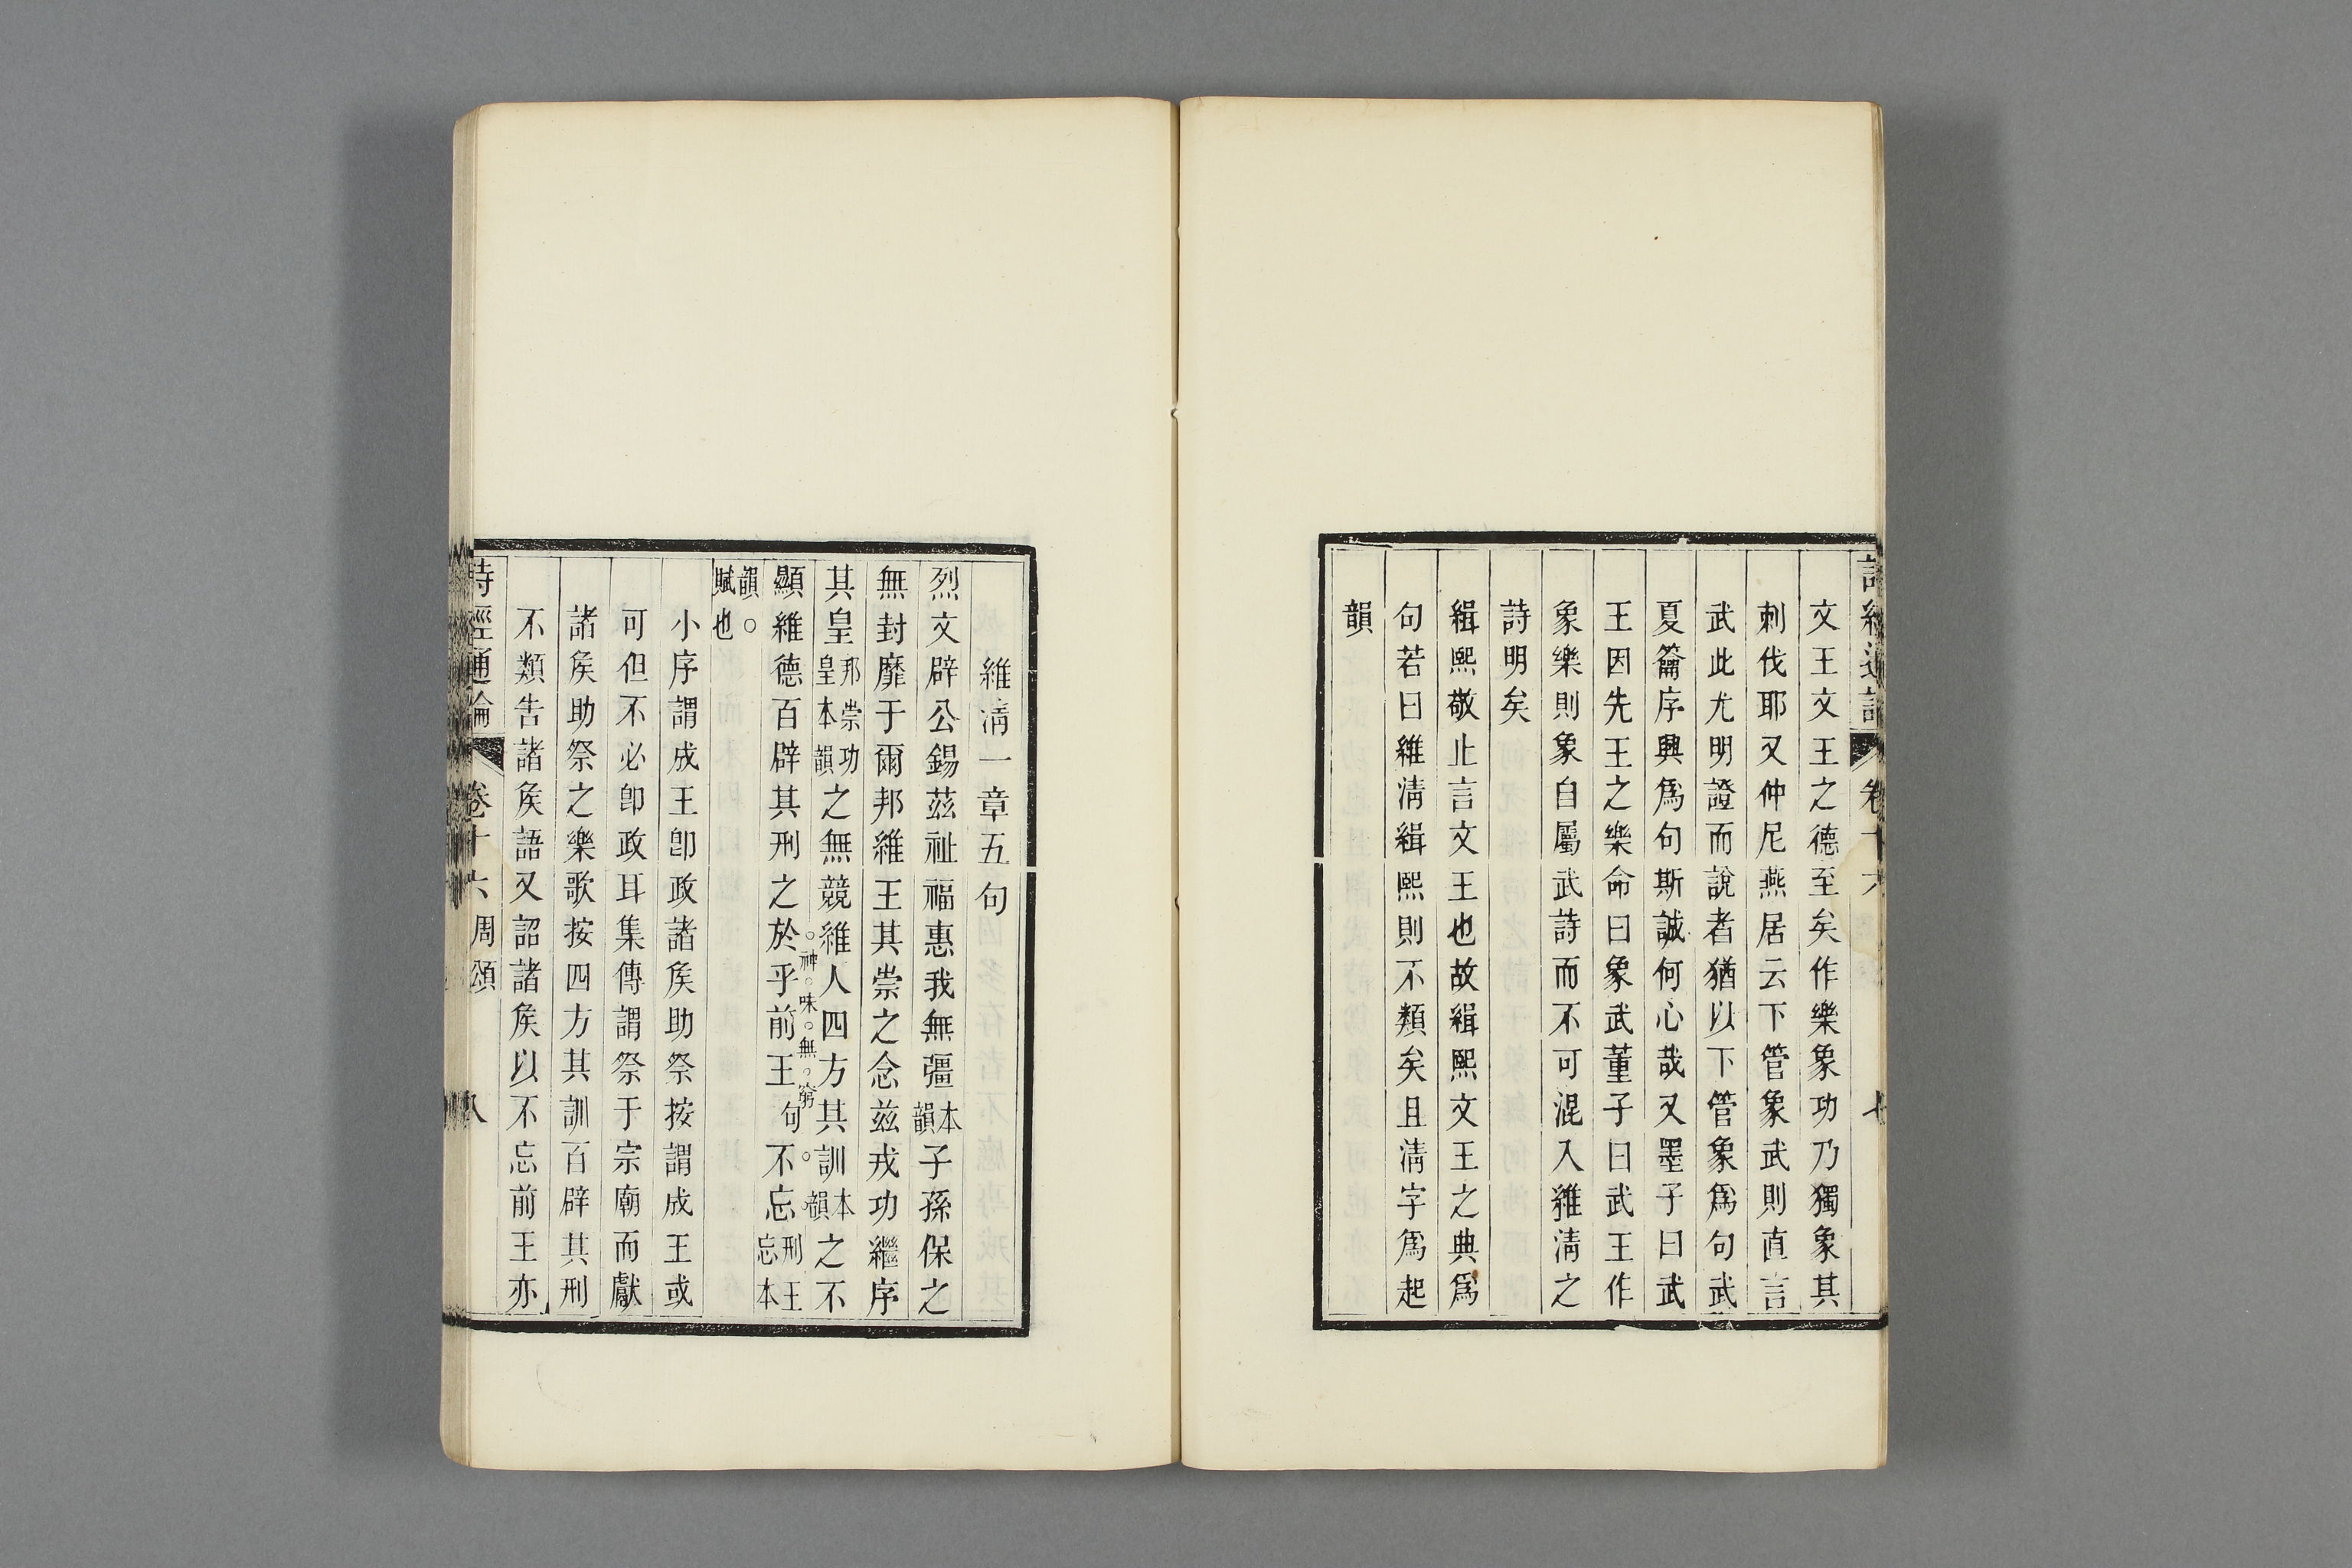 詩經通論 卷十六 七
文王文王之德至矣作樂象功乃獨象其
刺伐耶又仲尼燕居云下管象武則直言
武此尤明證而說者猶以下管象爲句武
夏籥序興爲句斯誠何心哉又墨子曰武
王因先王之樂命曰象武董子曰武王作
象樂則象自屬武詩而不可混入維淸之
詩明矣
緝熙敬止言文王也故緝熙文王之典爲
句若曰維淸緝熙則不類矣且淸字爲起
韻
維淸一章五句
烈文辟公錫茲祉福惠我無彊本韻子孫保之
無封靡于爾邦維王其崇之念茲戎功繼序
其皇邦崇功皇本韻之無競維人四方其訓本韻之不
神味無窮
顯維德百辟其刑之於乎前王句不忘刑王忘本
韻○賦也
小序謂成王卽政諸侯助祭按謂成王或
可但不必卽政耳集傳謂祭于宗廟而獻
諸侯助祭之樂歌按四方其訓百辟其刑
不類告諸侯語又詔諸侯以不忘前王亦
詩經通論 卷十六 周頌 八